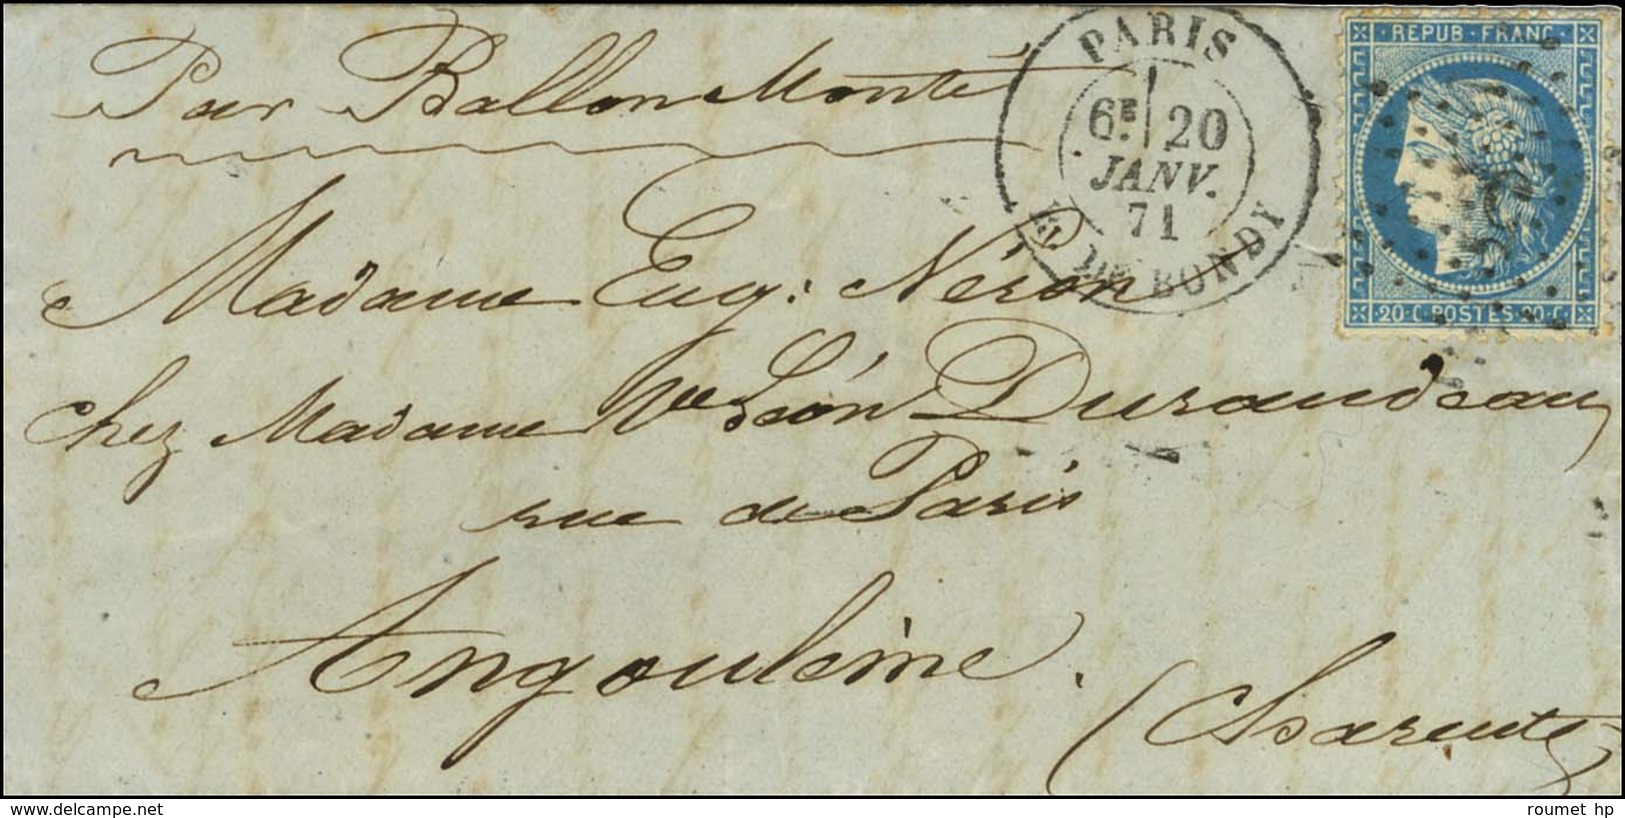 Par Ballon Monté
PARIS
6E. 20
JANV.
71
R. DE BONDY
REPUB·FRANC·
20·C·POSTES·20·C·
Madame Eug: Néron
chez Madame Ve Léon Durandeau
rue de Paris
Angoulême.
(Charente)
www.delcampe.net
roumet hp